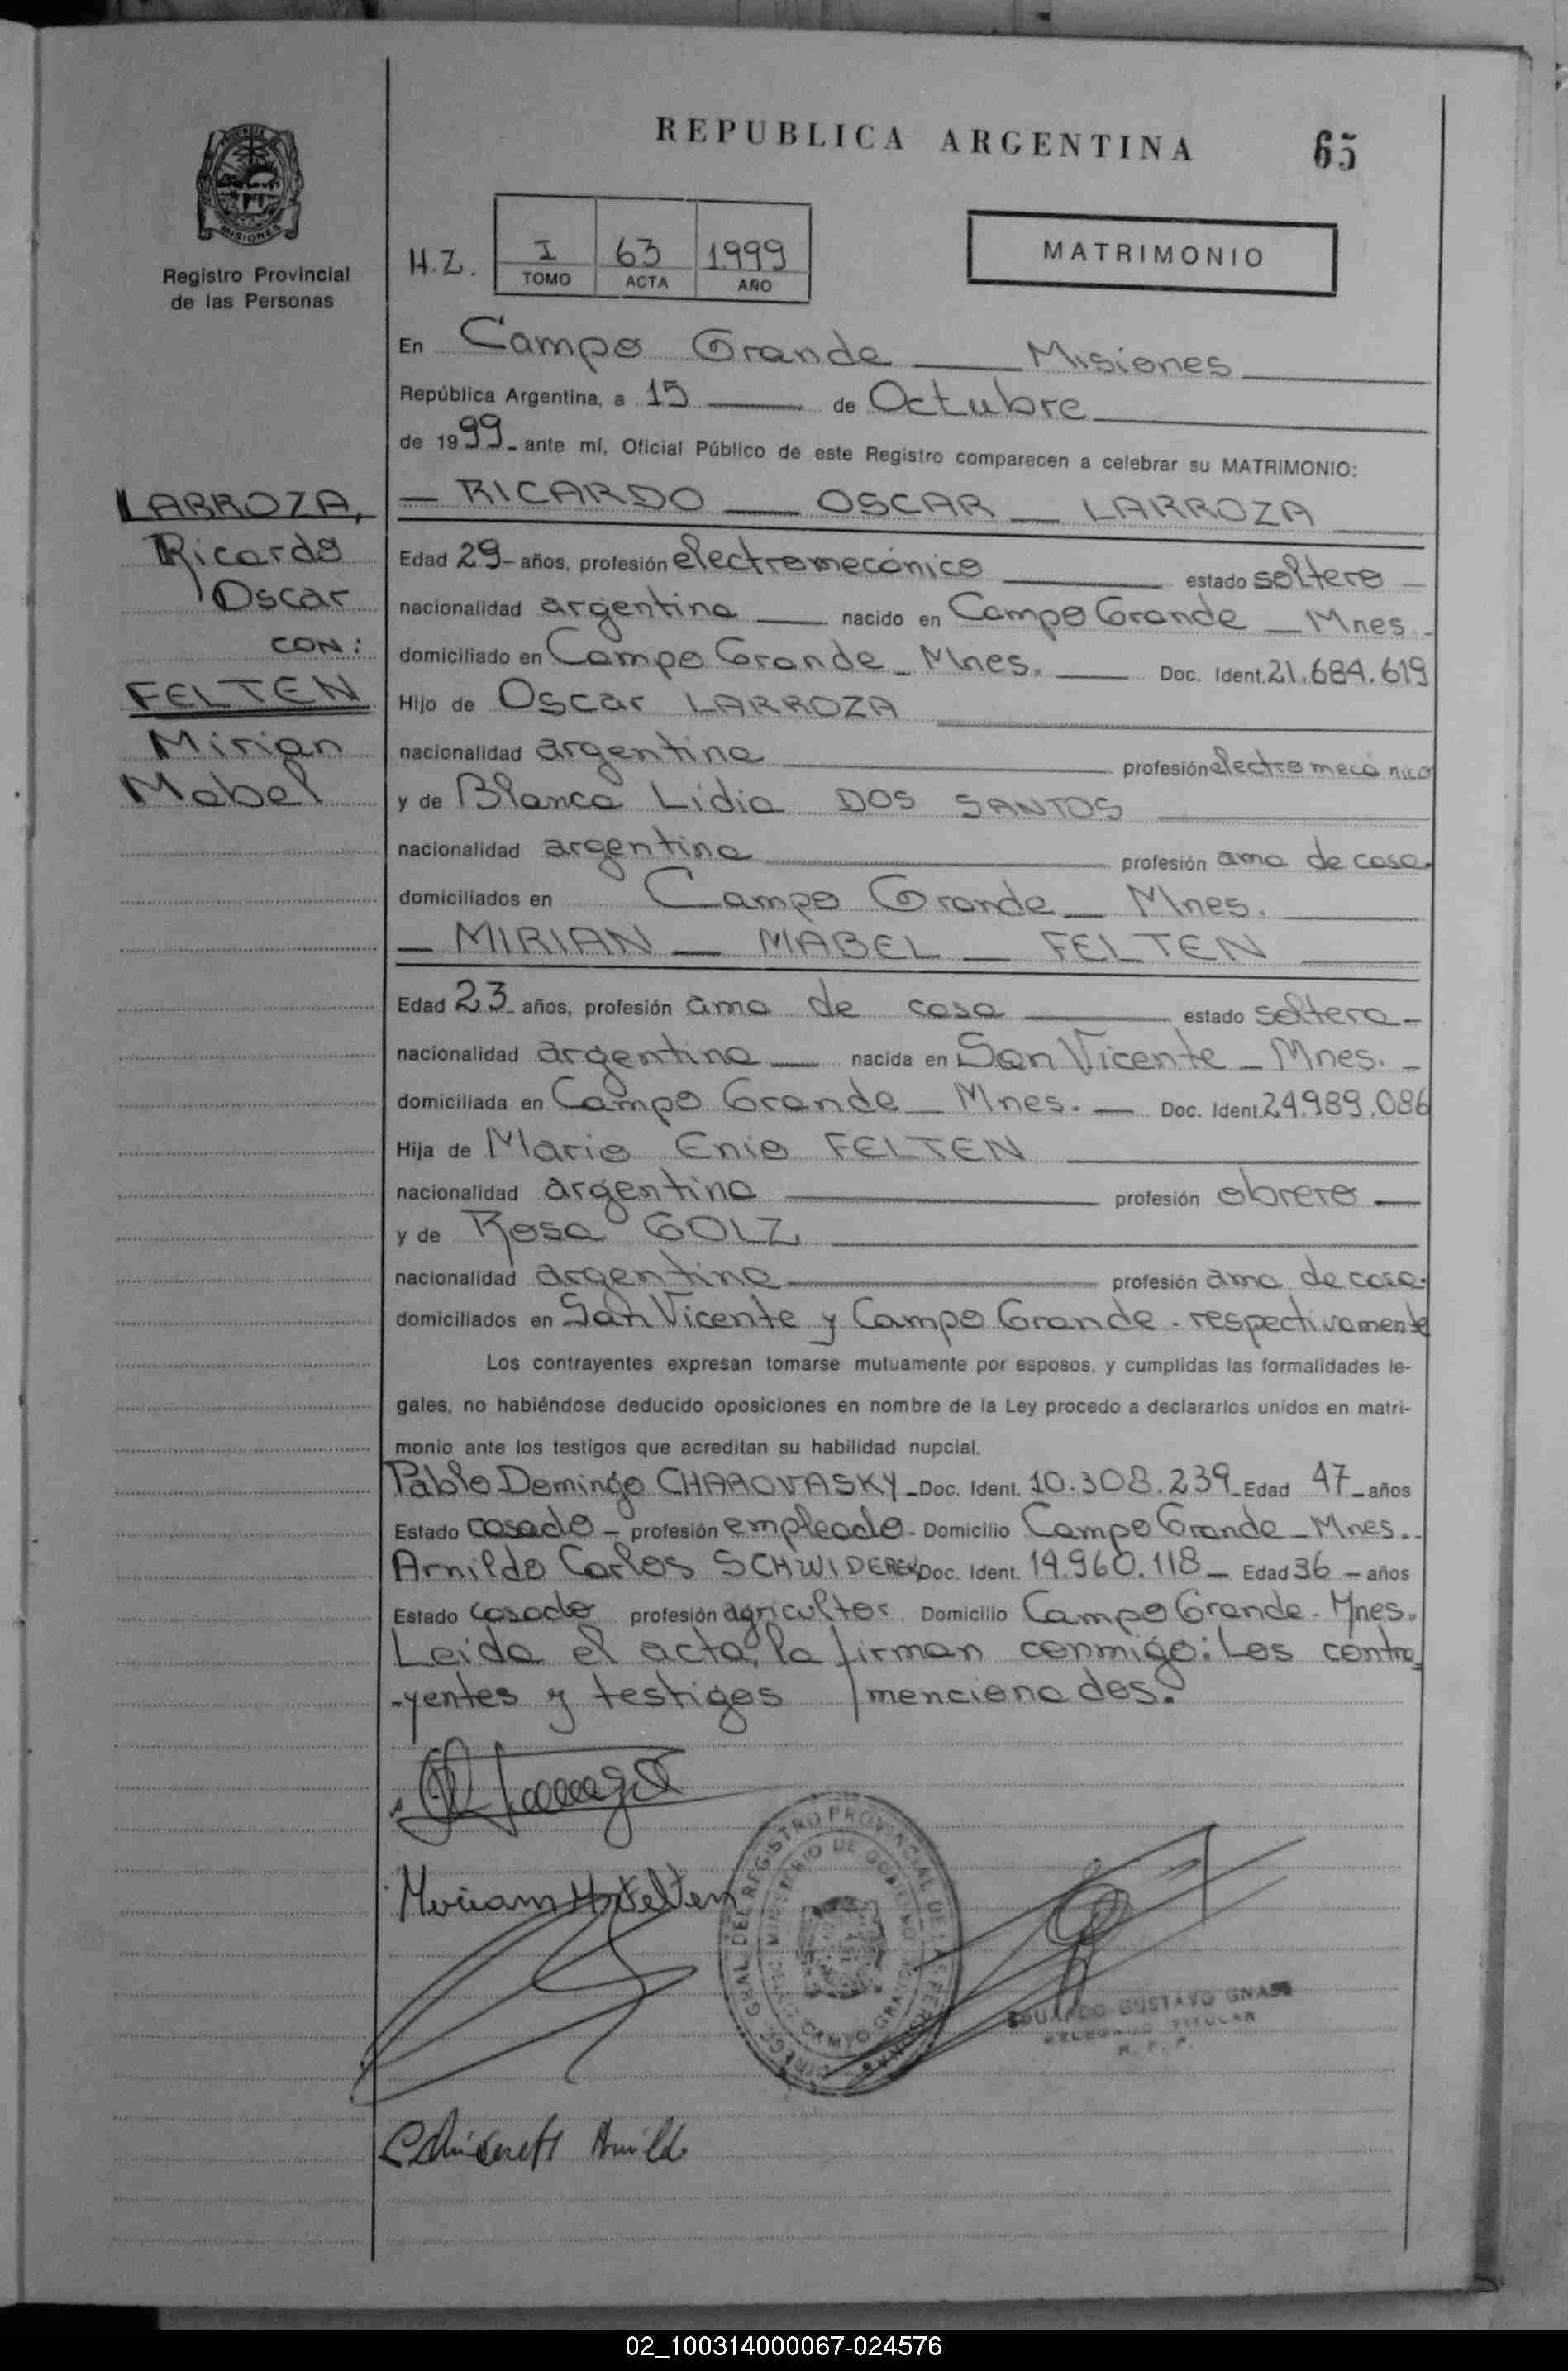 REPUBLICA ARGENTINA
65
MISIONES
Registro Provincial
de las Personas
H.Z.
I 63 1999
TOMO ACTA AÑO
MATRIMONIO
En Campo Grande Misiones
República Argentina, a 15 de Octubre
de 1999 ante mí, Oficial Público de este Registro comparecen a celebrar su MATRIMONIO:
LARROZA,
Ricardo
Oscar
CON:
FELTEN
Mirian
Mabel
RICARDO OSCAR LARROZA
Edad 29 años, profesión electromecánico estado soltero
nacionalidad argentina nacido en Campo Grande Mnes.
domiciliado en Campo Grande Mnes. Doc. Ident. 21.684.619
Hijo de Oscar LARROZA
nacionalidad argentina profesión electromecánico
y de Blanca Lidia DOS SANTOS
nacionalidad argentina profesión ama de casa.
domiciliados en Campo Grande Mnes.
MIRIAN MABEL FELTEN
Edad 23 años, profesión ama de casa estado soltera
nacionalidad argentina nacida en San Vicente Mnes.
domiciliada en Campo Grande Mnes. Doc. Ident. 24.989.086
Hija de Mario Enio FELTEN
nacionalidad argentina profesión obrero
y de Rosa GOLZ
nacionalidad argentina profesión ama de casa.
domiciliados en San Vicente y Campo Grande. respectivamente
Los contrayentes expresan tomarse mutuamente por esposos, y cumplidas las formalidades le-
gales, no habiéndose deducido oposiciones en nombre de la Ley procedo a declararlos unidos en matri-
monio ante los testigos que acreditan su habilidad nupcial.
Pablo Domingo CHAROVASKY Doc. Ident. 10.308.239 Edad 47 años
Estado casado profesión empleado Domicilio Campo Grande Mnes.
Arnildo Carlos SCHWIDEREK Doc. Ident. 14.960.118 Edad 36 años
Estado casado profesión agricultor Domicilio Campo Grande Mnes.
Leida el acta, la firman conmigo: Los contra-
-yentes y testigos mencionados.
Miriam M. Felten
DIREC. GRAL. DEL REGISTRO PROVINCIAL DE LAS PERSONAS
MINISTERIO DE GOBIERNO
CAMPO GRANDE
EDUARDO GUSTAVO GNASS
DELEGADO TITULAR
R. P. P.
02_100314000067-024576